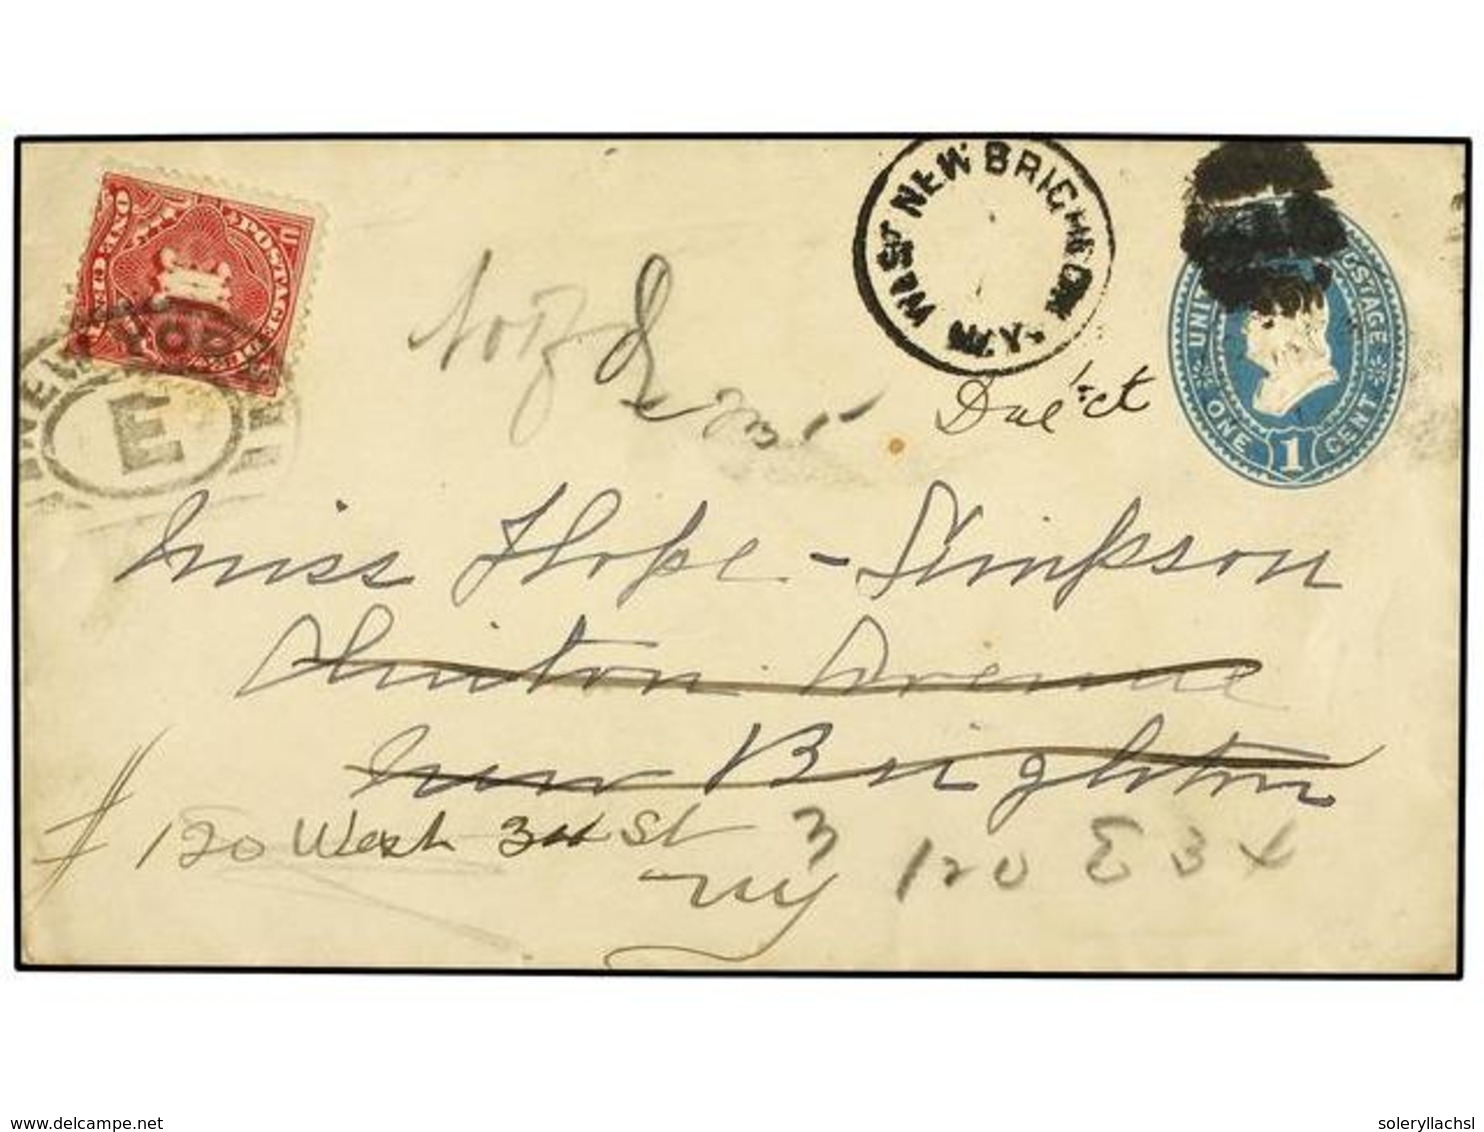 WEST NEW BRIGHTON
N.Y.
UNITED POSTAGE
ONE 1 CENT
U. POSTAGE
ONE CENT
NEW YORK
E
Due 1 ct
Miss Hope-Simpson
Clinton Avenue
New Brighton
120 West 34 St 3 120 E 34
NY
www.delcampe.net
soleryllachsl